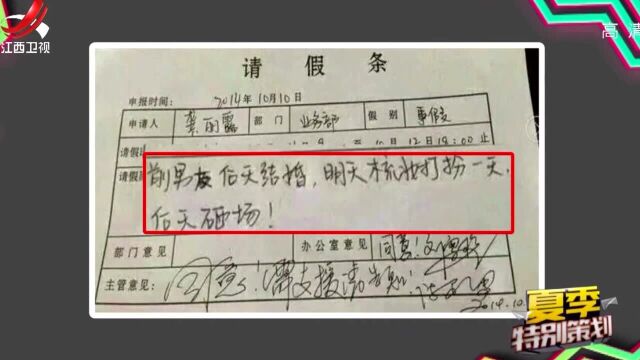 江西卫视
高清
请假条
申报时间： 2014年10月10日
申请人 龚丽露 部门 业务部 假别 事假
请假 10月12日18:00止
请假
前男友后天结婚，明天梳妆打扮一天，
后天砸场！
部门意见 办公室意见 同意！
主管意见： 同意！需支援请告知！
2014.10.
夏季
特别策划